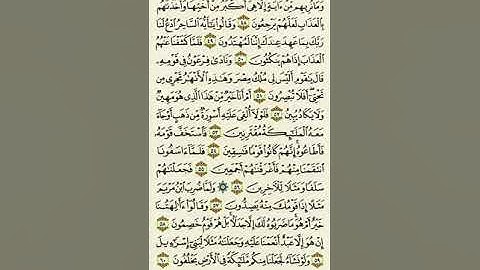 وَمَا نُرِيهِم مِّنْ ءَايَةٍ إِلَّا هِىَ أَكْبَرُ مِنْ أُخْتِهَا وَأَخَذْنَٰهُم
بِٱلْعَذَابِ لَعَلَّهُمْ يَرْجِعُونَ ٤٨ وَقَالُوا۟ يَٰٓأَيُّهَ ٱلسَّاحِرُ ٱدْعُ لَنَا
رَبَّكَ بِمَا عَهِدَ عِندَكَ إِنَّنَا لَمُهْتَدُونَ ٤٩ فَلَمَّا كَشَفْنَا عَنْهُمُ
ٱلْعَذَابَ إِذَا هُمْ يَنكُثُونَ ٥٠ وَنَادَىٰ فِرْعَوْنُ فِى قَوْمِهِۦ
قَالَ يَٰقَوْمِ أَلَيْسَ لِى مُلْكُ مِصْرَ وَهَٰذِهِ ٱلْأَنْهَٰرُ تَجْرِى مِن
تَحْتِىٓ أَفَلَا تُبْصِرُونَ ٥١ أَمْ أَنَا۠ خَيْرٌ مِّنْ هَٰذَا ٱلَّذِى هُوَ مَهِينٌ
وَلَا يَكَادُ يُبِينُ ٥٢ فَلَوْلَآ أُلْقِىَ عَلَيْهِ أَسْوِرَةٌ مِّن ذَهَبٍ أَوْ جَآءَ
مَعَهُ ٱلْمَلَٰٓئِكَةُ مُقْتَرِنِينَ ٥٣ فَٱسْتَخَفَّ قَوْمَهُۥ
فَأَطَاعُوهُ إِنَّهُمْ كَانُوا۟ قَوْمًا فَٰسِقِينَ ٥٤ فَلَمَّآ ءَاسَفُونَا
ٱنتَقَمْنَا مِنْهُمْ فَأَغْرَقْنَٰهُمْ أَجْمَعِينَ ٥٥ فَجَعَلْنَٰهُمْ
سَلَفًا وَمَثَلًا لِّلْءَاخِرِينَ ٥٦ وَلَمَّا ضُرِبَ ٱبْنُ مَرْيَمَ
مَثَلًا إِذَا قَوْمُكَ مِنْهُ يَصِدُّونَ ٥٧ وَقَالُوٓا۟ ءَأَٰلِهَتُنَا
خَيْرٌ أَمْ هُوَ مَا ضَرَبُوهُ لَكَ إِلَّا جَدَلًۢا بَلْ هُمْ قَوْمٌ خَصِمُونَ ٥٨
إِنْ هُوَ إِلَّا عَبْدٌ أَنْعَمْنَا عَلَيْهِ وَجَعَلْنَٰهُ مَثَلًا لِّبَنِىٓ إِسْرَٰٓءِيلَ
٥٩ وَلَوْ نَشَآءُ لَجَعَلْنَا مِنكُم مَّلَٰٓئِكَةً فِى ٱلْأَرْضِ يَخْلُفُونَ ٦٠